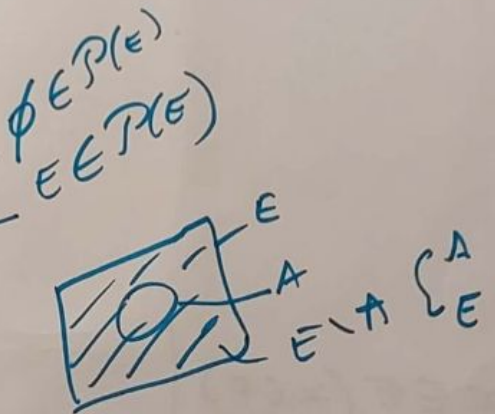 ϕ ∈ P(E)
E ∈ P(E)
E
A
E \ A { A
E